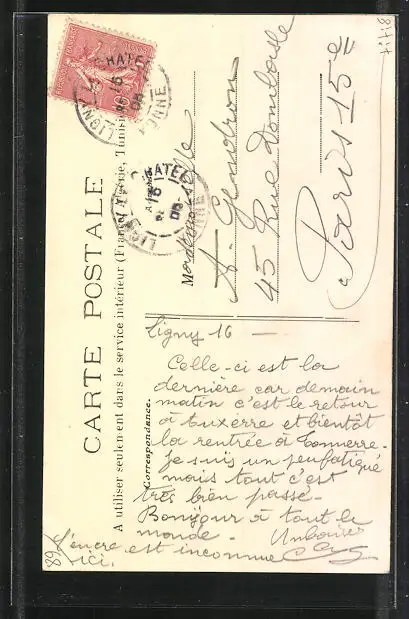 CARTE POSTALE
A utiliser seulement dans le service intérieur (France, Algérie, Tunisie
Correspondance.
Mademoiselle
A. Gendron
45 Rue Dombasle
à Paris 15e
Ligny 16 —
Celle-ci est la
dernière car demain
matin c'est le retour
à Auxerre et bientôt
la rentrée à Tonnerre.
Je suis un peu fatiguée
mais tout c'est
très bien passé.
Bonjour à tout le
monde. Un baiser
L'encre est inconnue
ici.